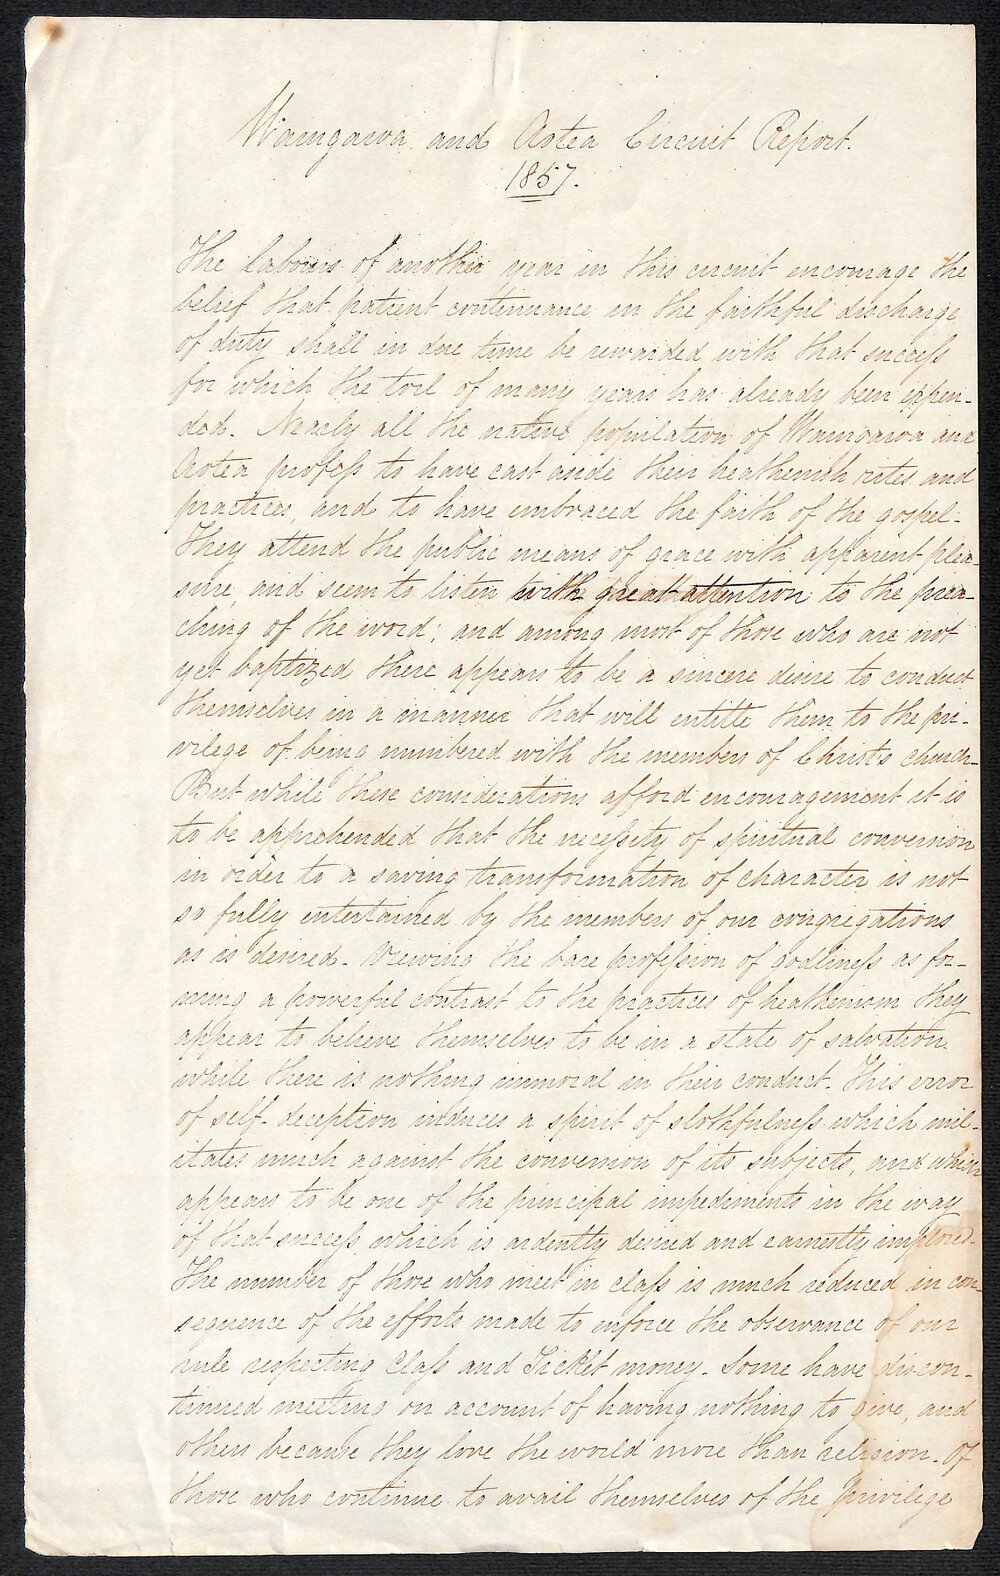 Waingaroa and Aotea Circuit Report.
1857.
The labours of another year in this circuit encourage the
belief that patient continuance in the faithful discharge
of duty shall in due time be rewarded with that success
for which the toil of many years has already been expen-
ded. Nearly all the native population of Waingaroa and
Aotea profess to have cast aside their heathenish rites and
practices, and to have embraced the faith of the gospel.
They attend the public means of grace with apparent plea-
sure, and seem to listen with great attention to the prea-
ching of the word; and among most of those who are not
yet baptized there appears to be a sincere desire to conduct
themselves in a manner that will entitle them to the pri-
vilege of being numbered with the members of Christ's church.
But while these considerations afford encouragement it is
to be apprehended that the necessity of spiritual conversion
in order to a saving transformation of character is not
so fully entertained by the members of our congregations
as is desired. Viewing the bare profession of godliness as for-
ming a powerful contrast to the practices of heathenism they
appear to believe themselves to be in a state of salvation
while there is nothing immoral in their conduct. This error
of self-deception induces a spirit of slothfulness which mil-
itates much against the conversion of its subjects, and which
appears to be one of the principal impediments in the way
of that success which is ardently desired and earnestly implored.
The number of those who meet in class is much reduced in con-
sequence of the efforts made to enforce the observance of our
rule respecting Class and Ticket money. Some have discon-
tinued meeting on account of having nothing to give, and
others because they love the world more than religion. Of
those who continue to avail themselves of the privilege